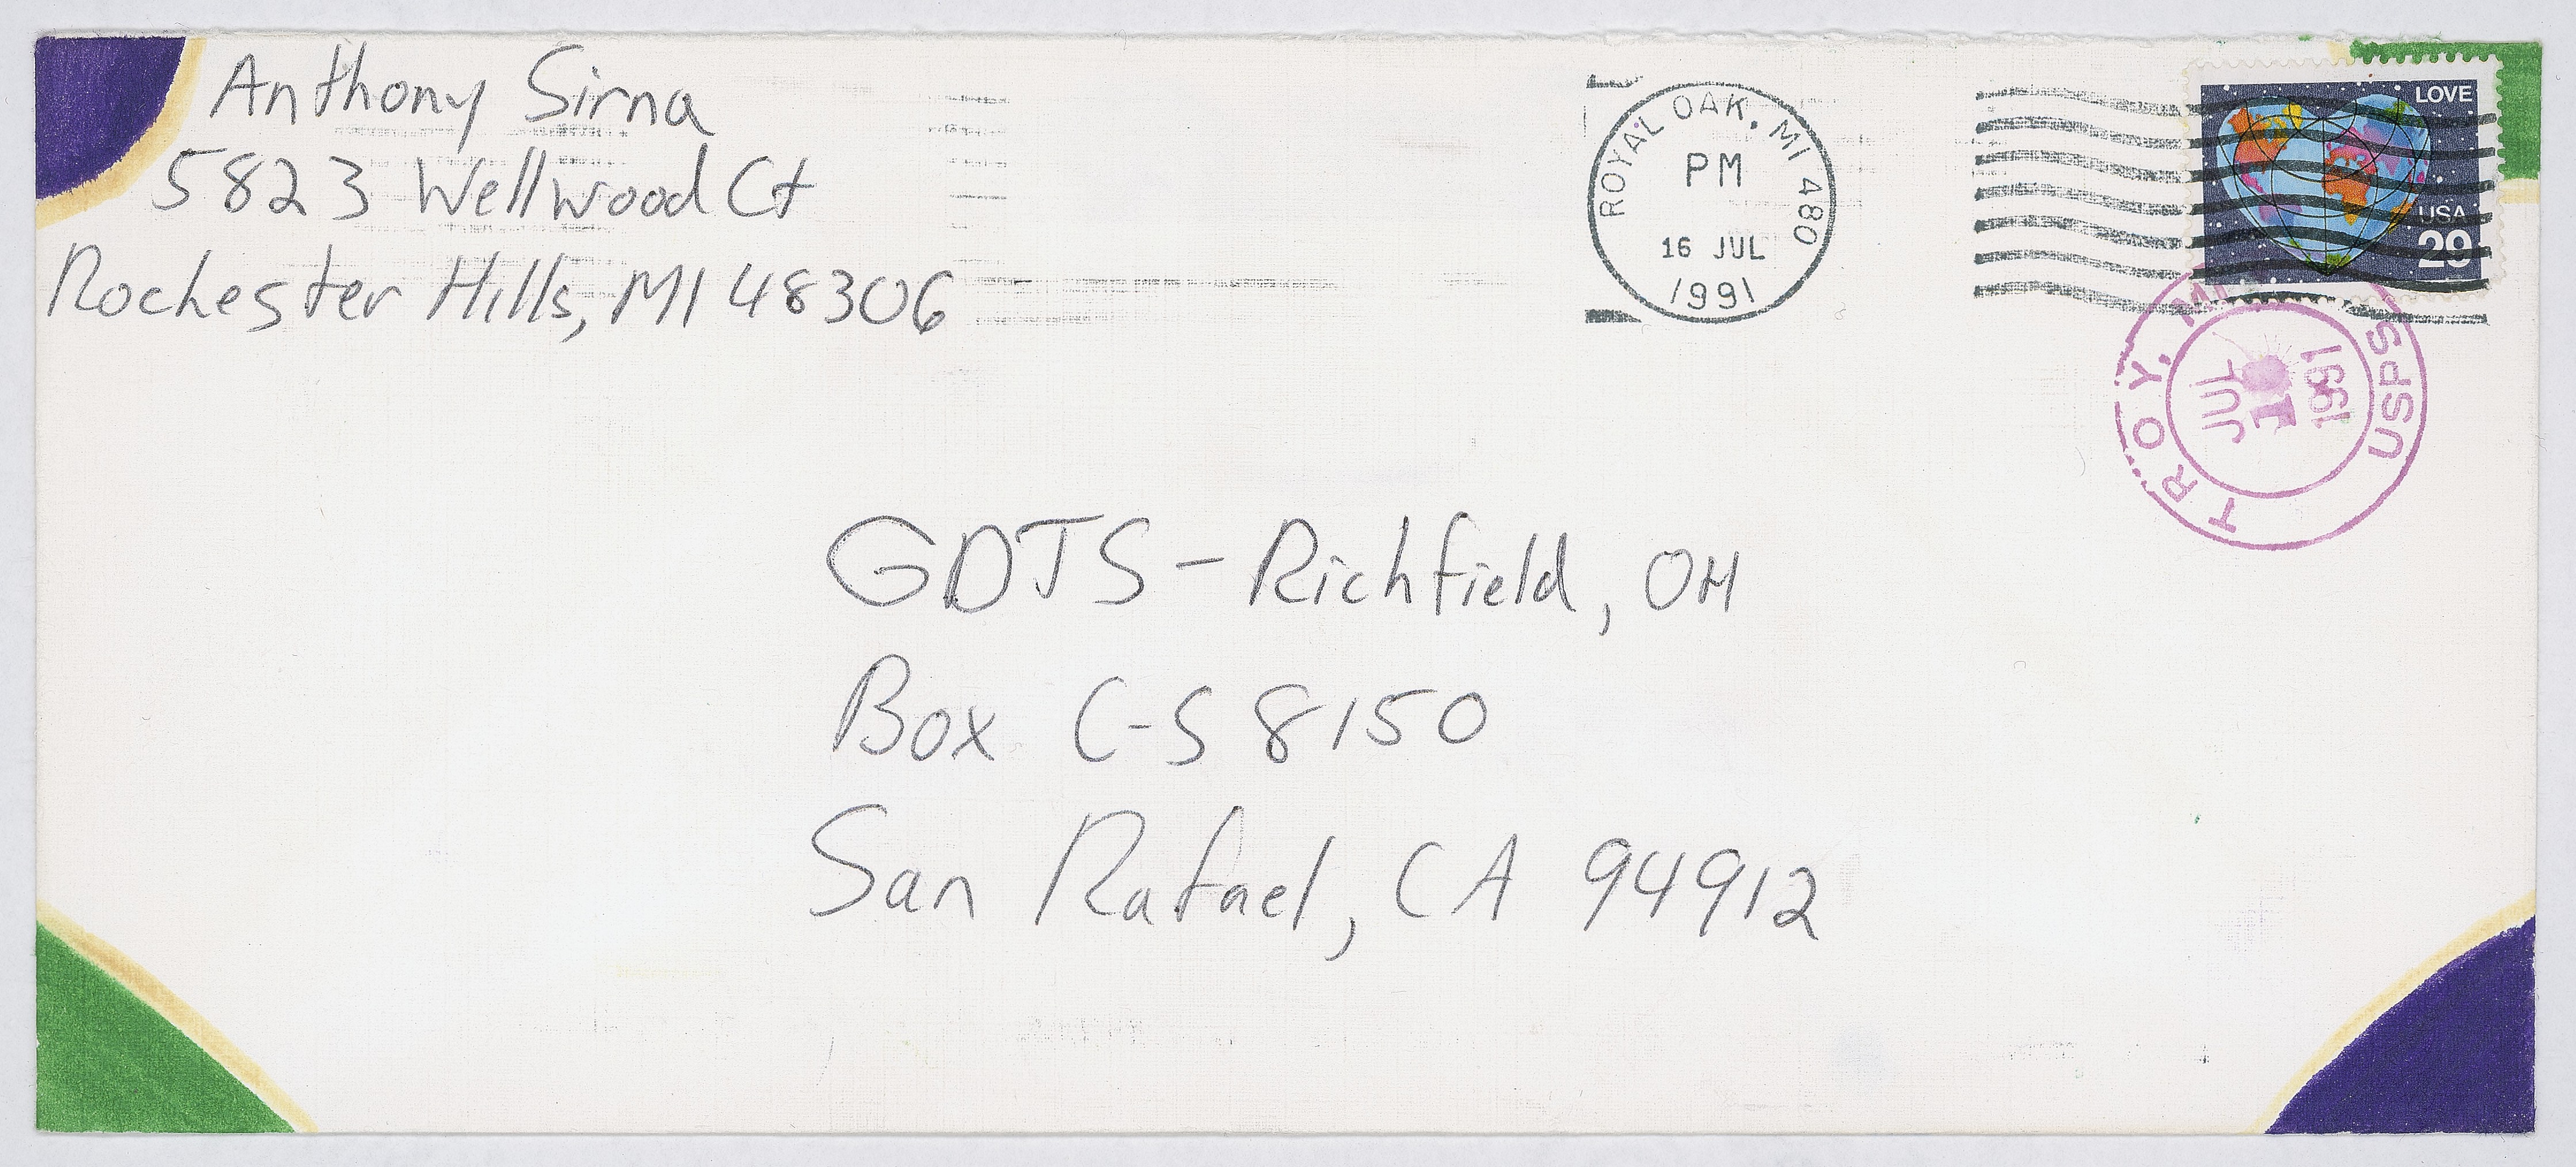 Anthony Sirna
5823 Wellwood Ct
Rochester Hills, MI 48306
ROYAL OAK, MI 480
PM
16 JUL
1991
LOVE
USA
29
TROY, MI
USPS
JUL
1991
GDTS - Richfield, OH
Box C-S 8150
San Rafael, CA 94912